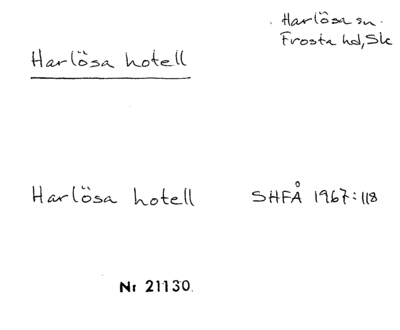 Harlösa sn.
Frosta hd, Sk
Harlösa hotell
Harlösa hotell SHFÅ 1967:118
Nr 21130